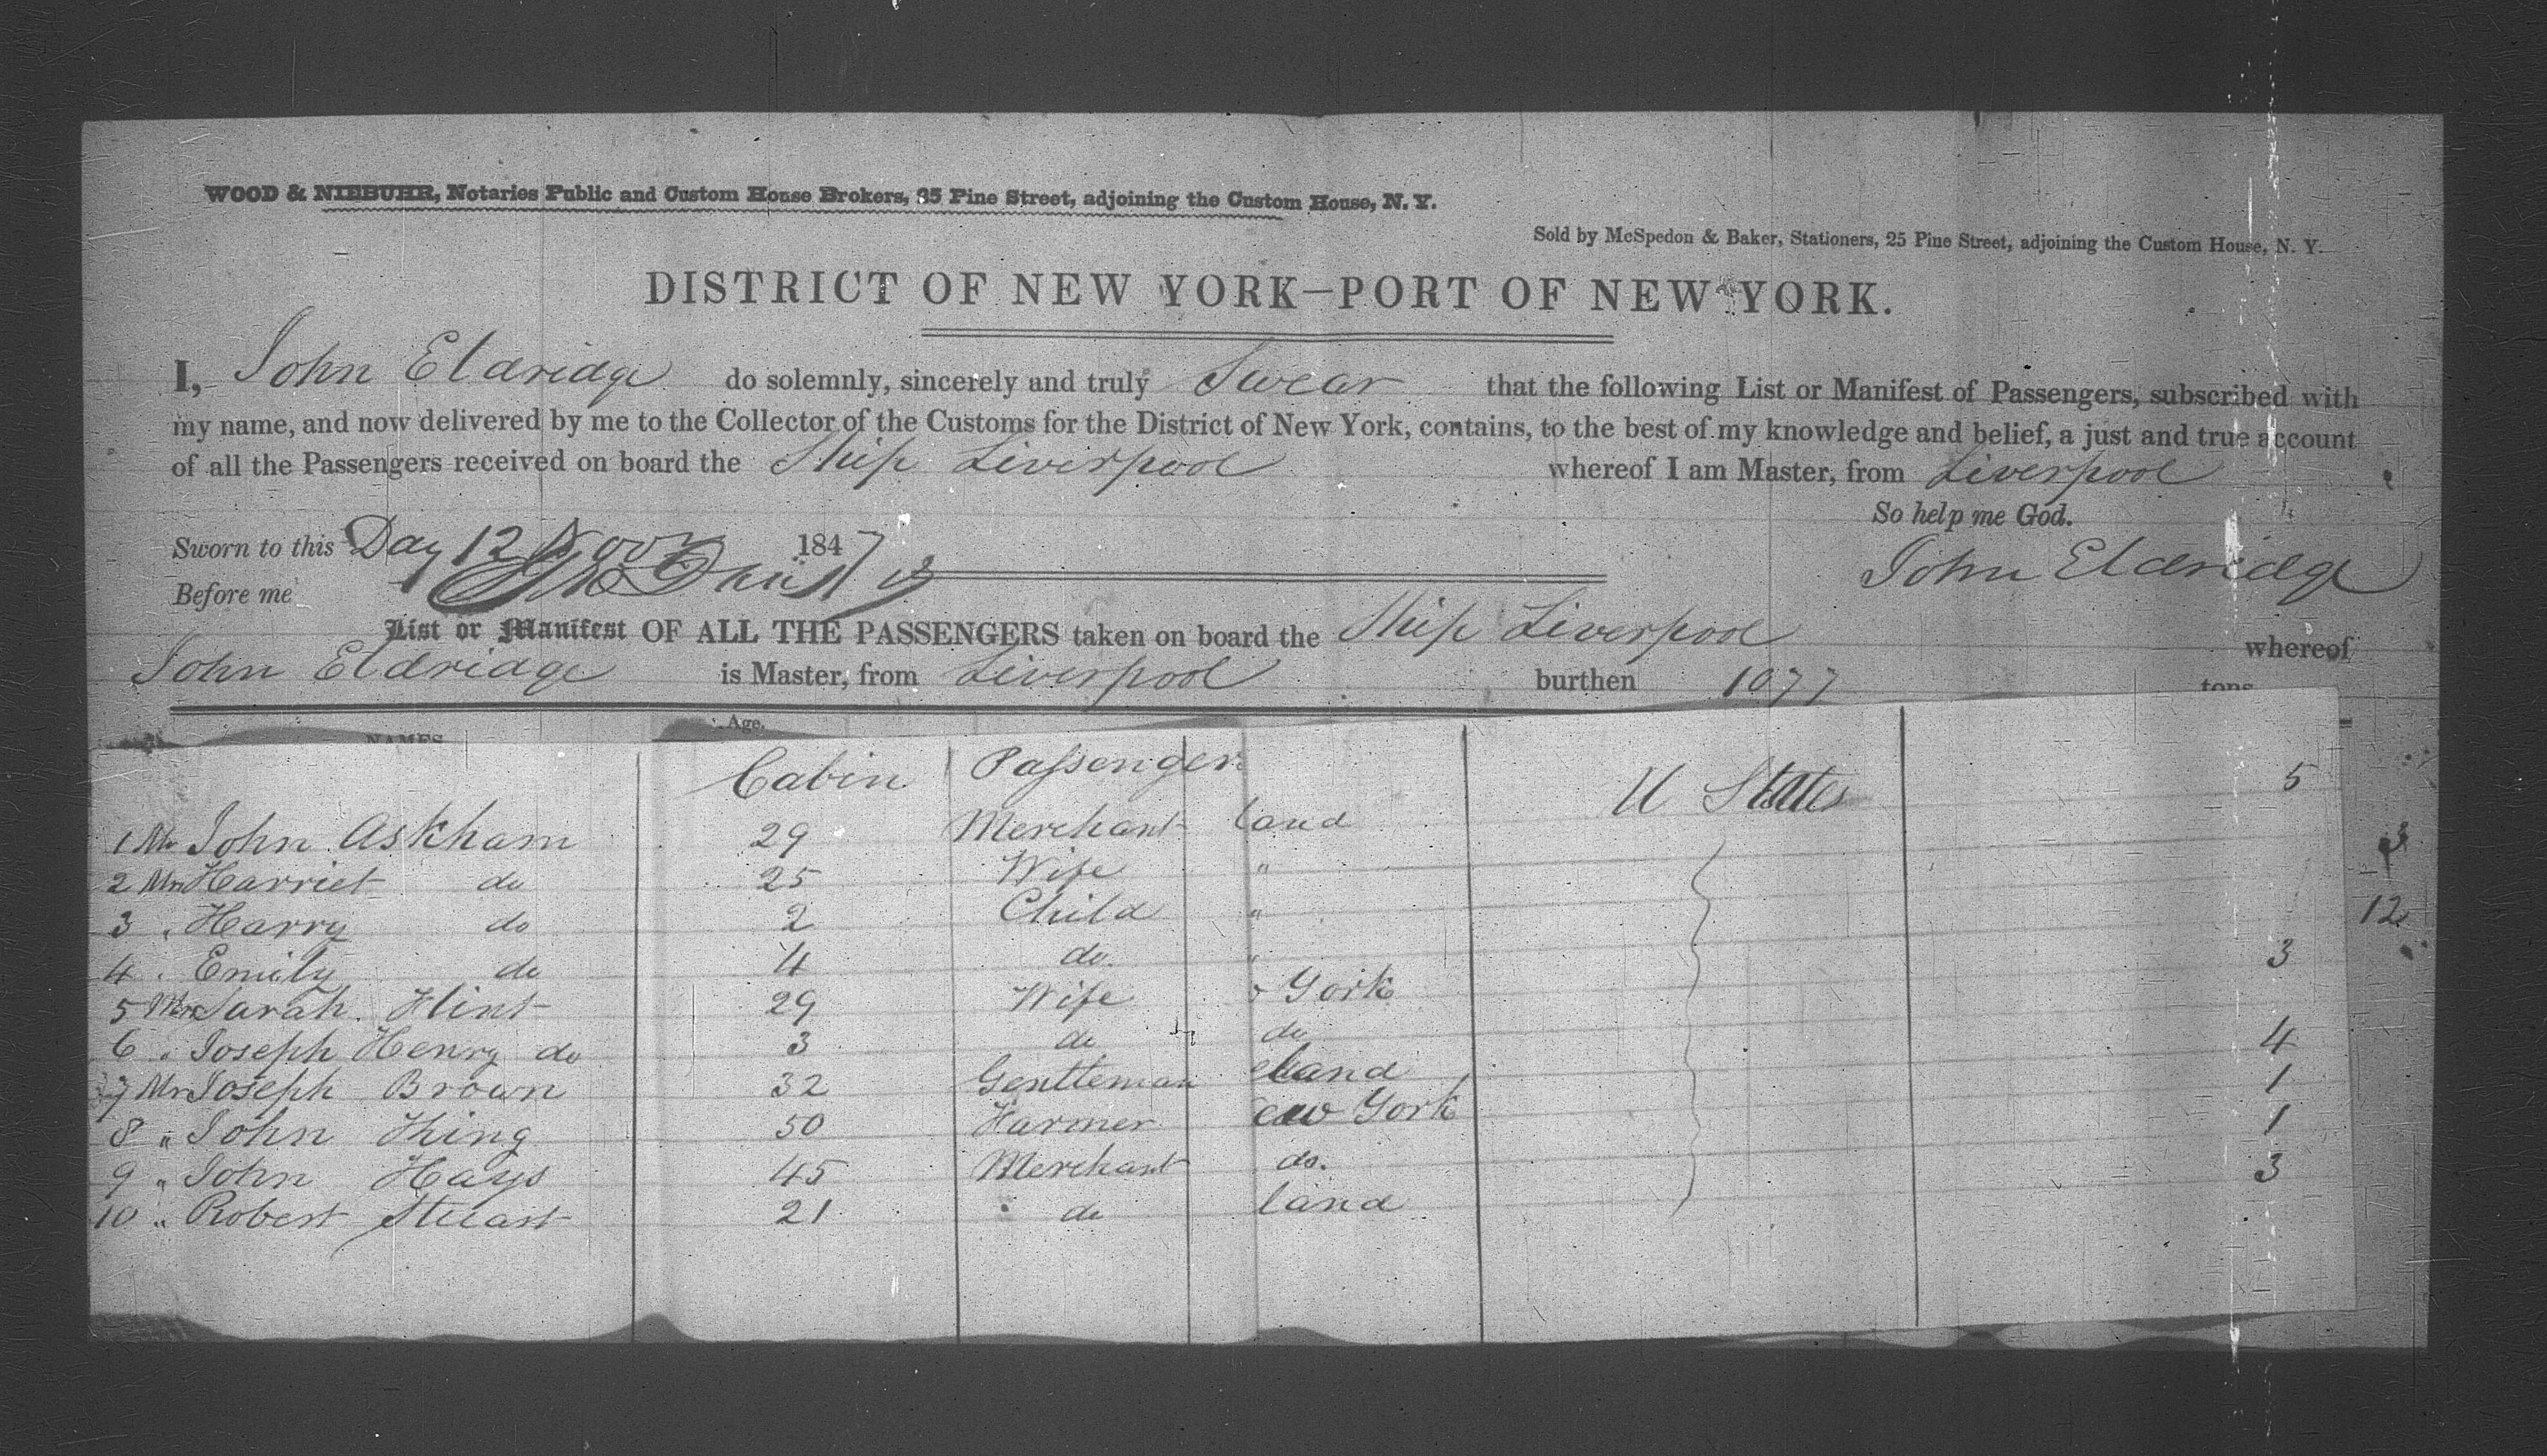 WOOD & NIEBUHR, Notaries Public and Custom House Brokers, 35 Pine Street, adjoining the Custom House, N. Y.
Sold by McSpedon & Baker, Stationers, 25 Pine Street, adjoining the Custom House, N. Y.
DISTRICT OF NEW YORK—PORT OF NEW YORK.
I, John Eldridge do solemnly, sincerely and truly Swear that the following List or Manifest of Passengers, subscribed with
my name, and now delivered by me to the Collector of the Customs for the District of New York, contains, to the best of my knowledge and belief, a just and true account
of all the Passengers received on board the Ship Liverpool whereof I am Master, from Liverpool
So help me God.
Sworn to this Day 12 Nov 1847
John Eldridge
Before me
List or Manifest OF ALL THE PASSENGERS taken on board the Ship Liverpool whereof
John Eldridge is Master, from Liverpool burthen 1077 tons
NAMES Age.
Cabin Passenger U States 5
1 Mr John Askham 29 Merchant land
3
2 Mrs Harriet do 25 Wife "
3 " Harry do 2 Child "
12
4 " Emily do 4 do " 3
5 Mrs Sarah Flint 29 Wife York
6 " Joseph Henry do 3 do do 4
7 Mr Joseph Brown 32 Gentleman land 1
8 " John King 50 Farmer ew York 1
9 " John Hays 45 Merchant do. 3
10 " Robert Stuart 21 do land